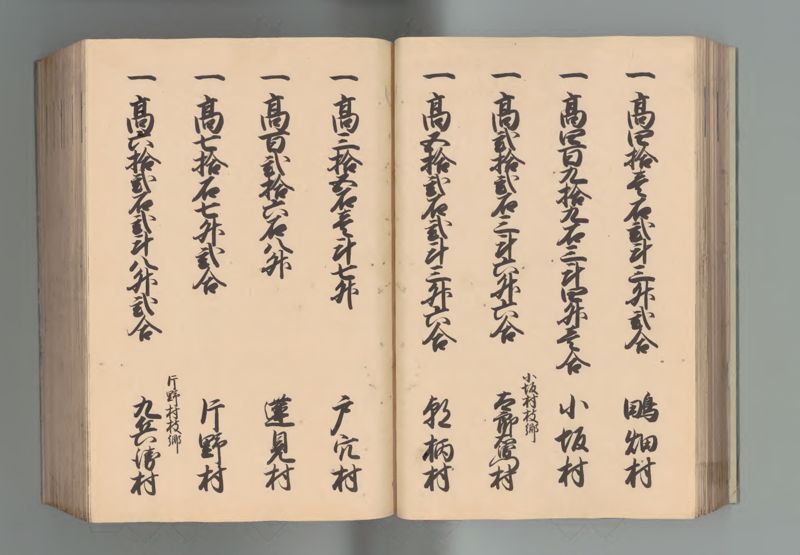 一 高四拾壱石弐斗三升弐合 鴫畑村
一 高四百九拾九石三斗四升壱合 小坂村
一 高弐拾弐石三斗六升六合 小坂村枝郷
一 高五拾弐石弐斗三升六合 朝柄村
一 高三拾五石壱斗七升 戸穴村
一 高百弐拾六石八升 蓮見村
一 高七拾石七升弐合 片野村
一 高六拾弐石弐斗八升弐合 片野村枝郷 九兵衛村